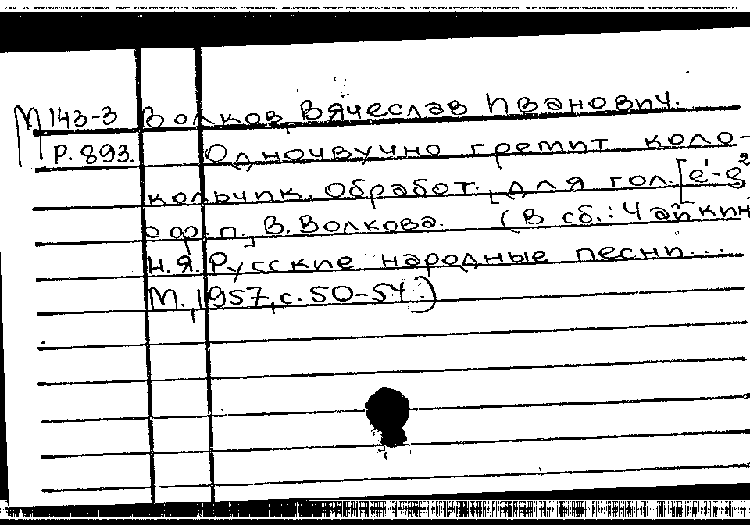 М 143-3 Волков, Вячеслав Иванович.
Р. 893. Одночвучно гремит коло-
кольчик. Обработ. для гол. [e¹-g²]
с ф.п., В. Волкова. (В сб.: Чайкин
Н.Я. Русские народные песни...
М., 1957, с. 50-54.)